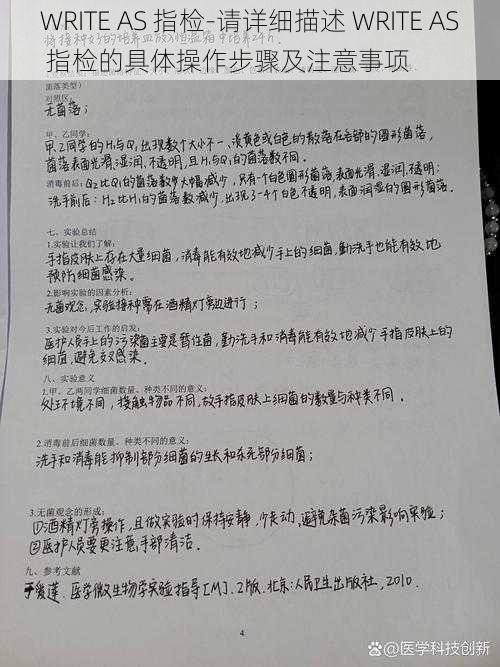 WRITE AS 指检-请详细描述 WRITE AS
指检的具体操作步骤及注意事项
菌落类型)
对照区:
无菌落;
甲、乙同学:
甲.乙同学的H₁与Q₁出现数个大小不一、淡黄色或白色的散落在各部的圆形菌落,
菌落表面光滑、湿润、不透明,且H₁与Q₁的菌落数不同.
消毒前后:Q₂比Q₁的菌落数少大幅减少,只有一个白色圆形菌落,表面光滑、湿润,不透明;
洗手前后:H₂比H₁的菌落数减少,出现了4个白色,不透明,表面润湿的圆形菌落.
七、实验总结
1.实验让我们了解:
手指皮肤上存在大量细菌,消毒能有效地减少手上的细菌,勤洗手也能有效地
预防细菌感染.
2.影响实验的因素分析:
无菌观念,实验接种需在酒精灯旁边进行;
3.实验对今后工作的启发:
医护人员手上的污染菌主要是暂住菌,勤洗手和消毒能有效地减少手指皮肤上的
细菌,避免交叉感染.
八、实验意义
1.甲、乙两同学细菌数量、种类不同的意义:
处在环境不同,接触物品不同,故手指皮肤上细菌的数量与种类不同.
2.消毒前后细菌数量、种类不同的意义:
洗手和消毒能抑制部分细菌的生长和杀死部分细菌;
3.无菌观念的形成:
①酒精灯旁操作,且做实验时保持安静,少走动,避免杂菌污染影响实验;
②医护人员要更注意手部清洁.
九、参考文献
于爱莲.医学微生物学实验指导[M].2版.北京:人民卫生出版社,2010.
4
百家号/医学科技创新